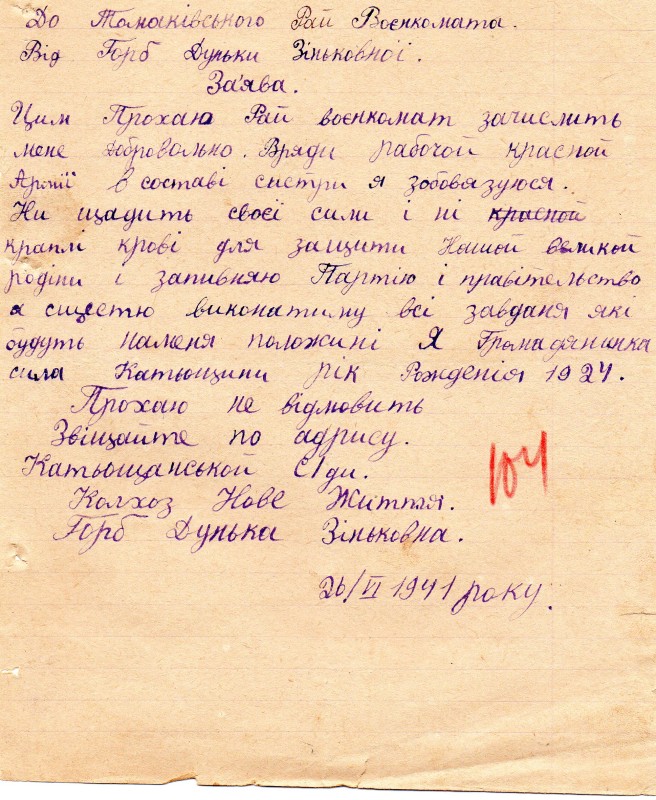 До Томаківського Рай Воєнкомата.
Від Горб Дуньки Зіньковної.
Заява.
Цим Прохаю Рай воєнкомат зачислить
мене добровольно. Вряди рабочой красной
Армії в составі систри я зобовязуюся.
Ни щадить своєї сили і ні красной
краплі крові для защити Нашой великой
родіни і запивняю Партію і правітельство
я счестю виконатиму всі завданя які
будуть наменя положині Я Громадянинка
сила Катьощини рік Рожденія 1924.
Прохаю не відмовить
Звіщайте по адрису.
Катьощанськой С/ди.
Колхоз Нове Життя.
104
Горб Дунька Зіньковна.
26/VI 1941 року.